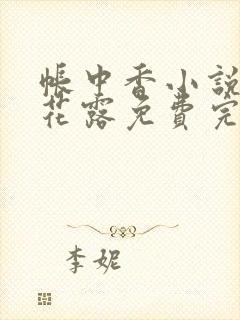 帳中香小說
花露免費完
李妮